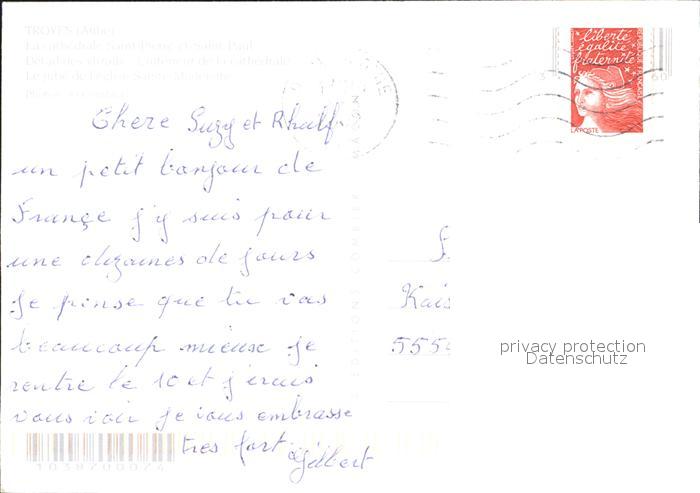 TROYES (Aube)
La cathédrale Saint-Pierre et Saint-Paul
Détail des vitraux - L'ornement de la cathédrale
Le jubé de l'église Sainte-Madeleine
liberté
égalité
fraternité
RÉPUBLIQUE FRANÇAISE
LA POSTE
MACON
EDITIONS COMBIER
Chere Suzy et Rhulf
un petit bonjour de
Françe j'y suis pour
une dizaines de jours
Je pense que tu vas
beaucoup mieux je
rentre le 10 et j'irais
vous voir je vous embrasse
tres fort
Gilbert
Kais
555
privacy protection
Datenschutz
1038700074